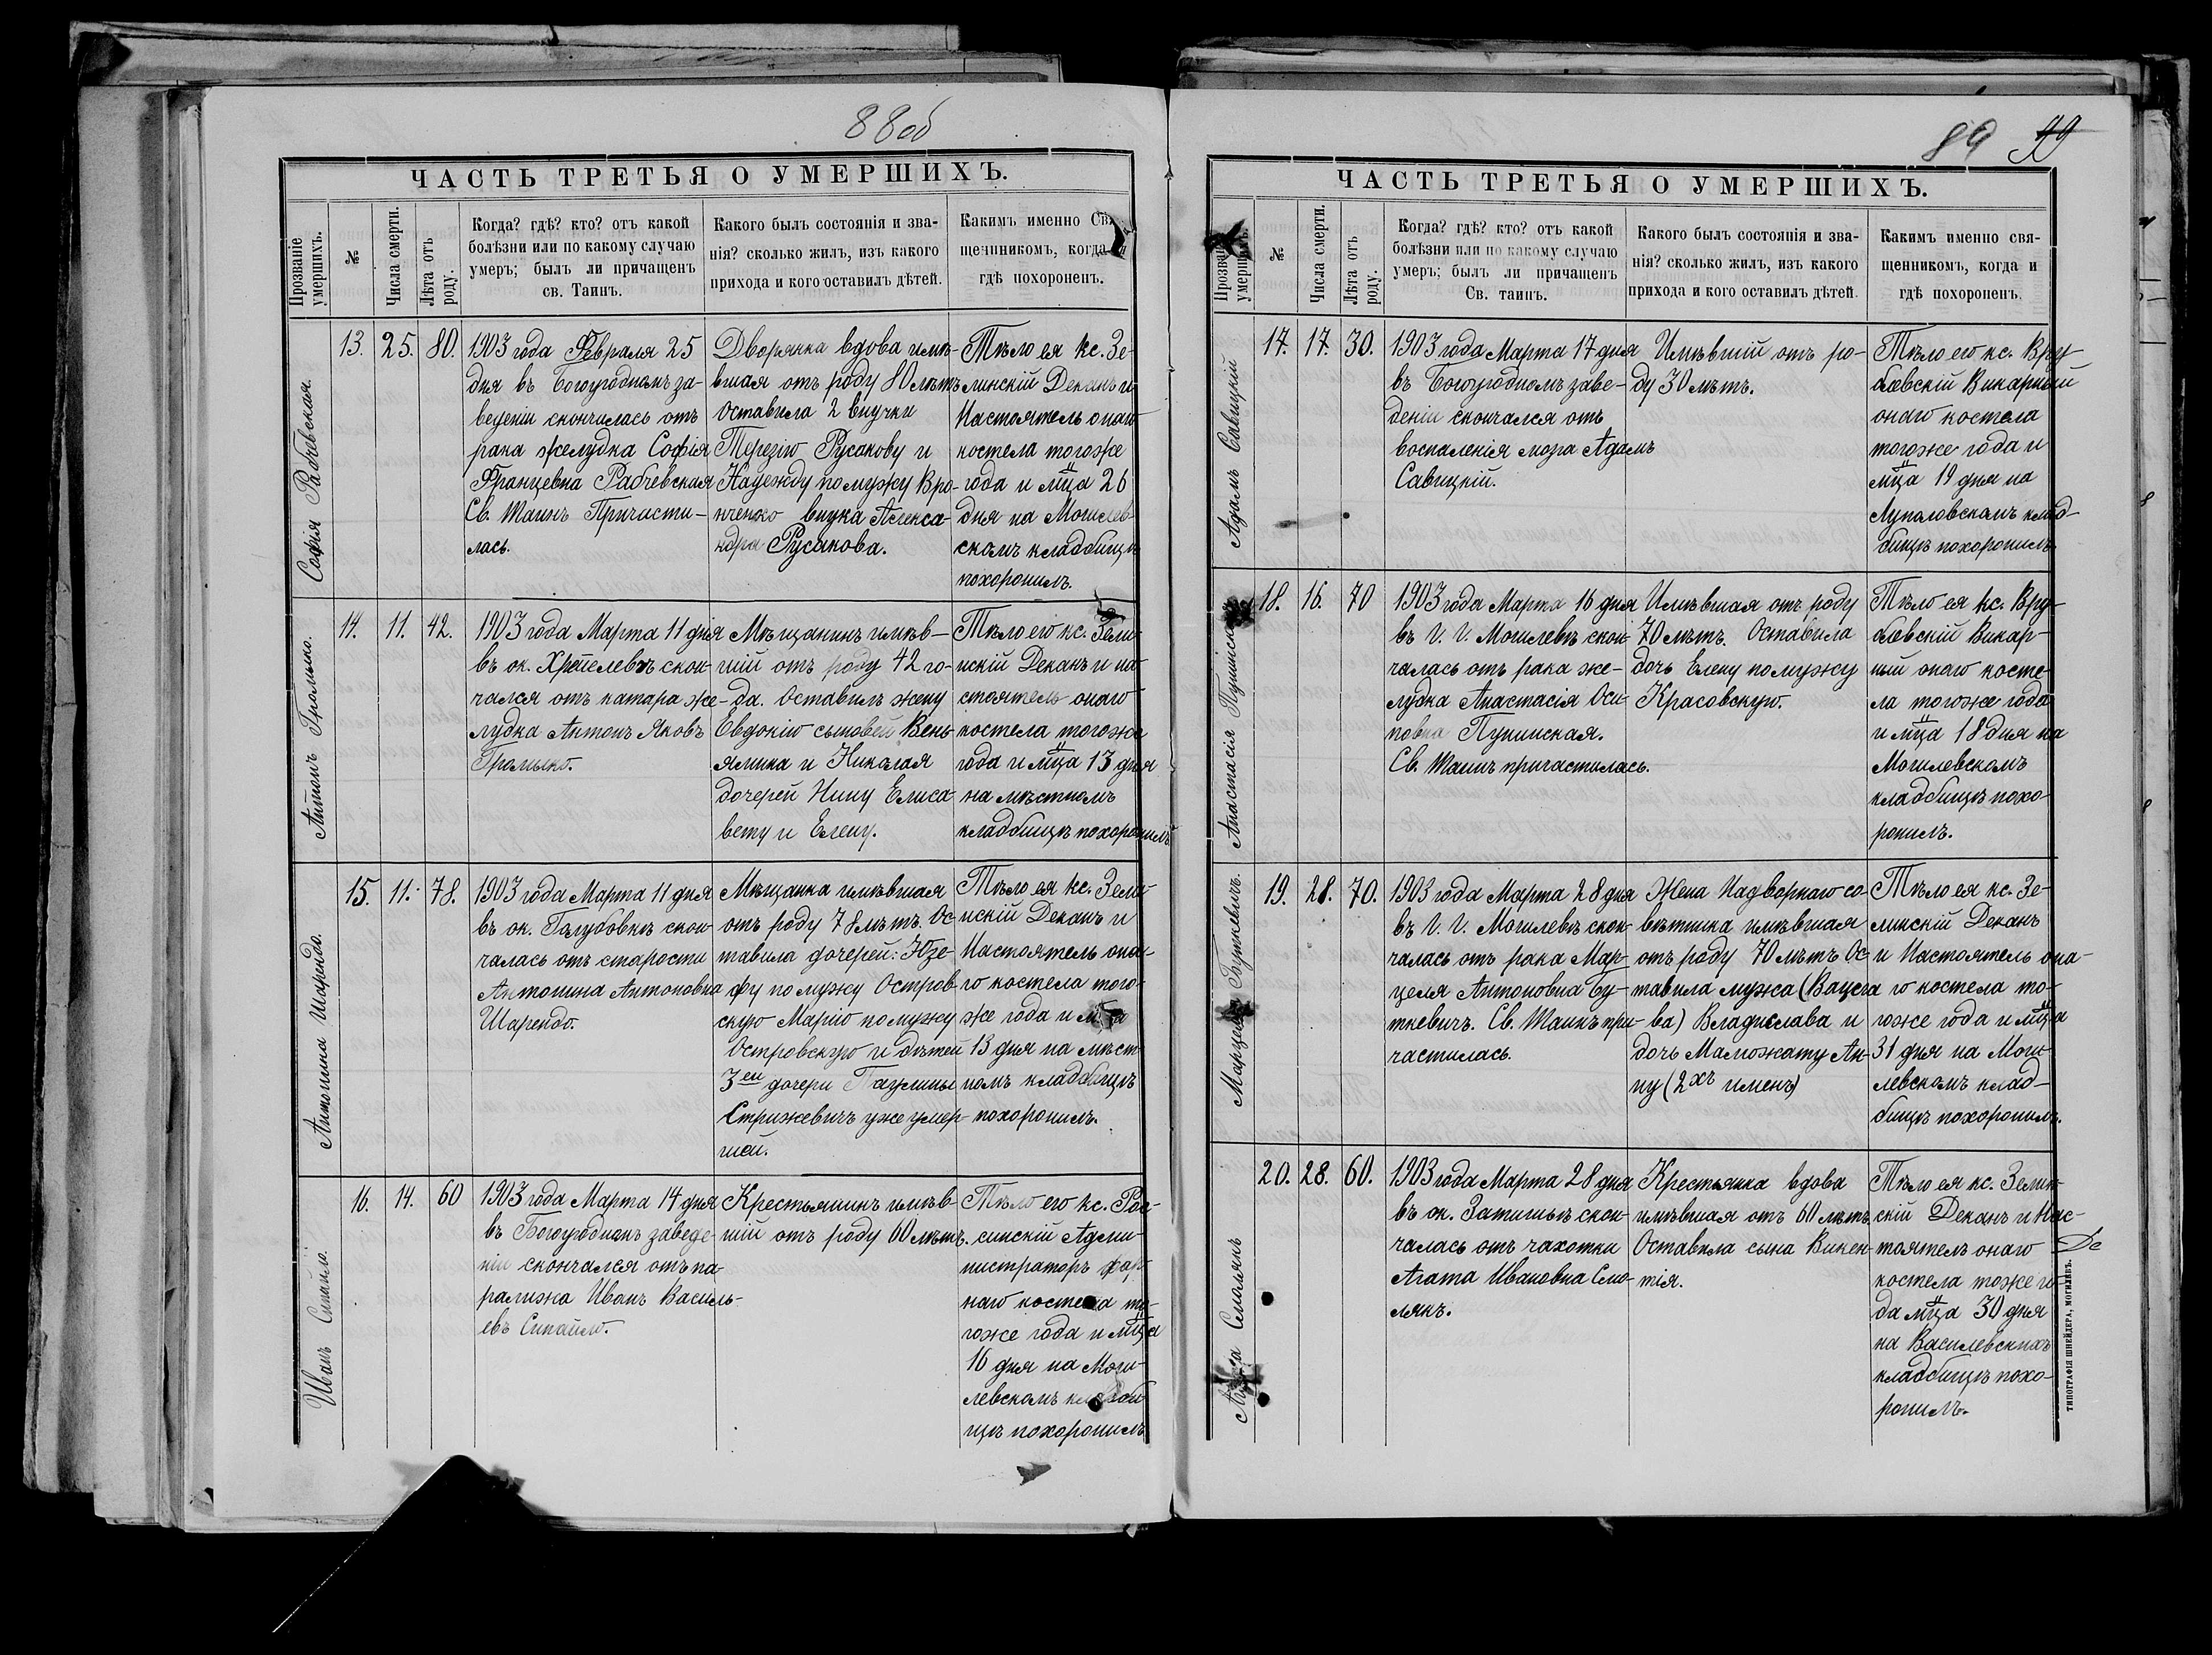 88об
ЧАСТЬ ТРЕТЬЯ О УМЕРШИХЪ.
Прозваніе умершихъ.
№
Числа смерти.
Лѣта отъ роду.
Когда? гдѣ? кто? отъ какой
болѣзни или по какому случаю
умеръ; былъ ли причащенъ
св. Таинъ.
Какого былъ состоянія и зва-
нія? сколько жилъ, изъ какого
прихода и кого оставилъ дѣтей.
Какимъ именно Свя-
щенникомъ, когда и
гдѣ похороненъ.
Софія Рабчевская.
13.
25.
80.
1903 года Февраля 25
дня въ Богоугодномъ за-
веденіи скончалась отъ
рака желудка Софія
Францевна Рабчевская
Св. Таинъ Причасти-
лась.
Дворянка вдова имѣ-
вшая отъ роду 80 лѣтъ
Оставила 2 внучки
Терезію Русакову и
Надежду по мужу Вро-
нченко внука Алекса-
ндра Русакова.
Тѣло ея кс. Зе-
линскій Деканъ и
Настоятель онаго
костела тогоже
года и мца 26
дня на Могилев-
скомъ кладбищѣ
похоронилъ.
Антонъ Громыко.
14.
11.
42.
1903 года Марта 11 дня
въ ок. скон-
чался отъ катара же-
лудка Антонъ Яковъ
Громыко.
Мѣщанинъ имѣв-
шій отъ роду 42 го-
да. Оставилъ жену
Евдокію сыновей Вень-
ямина и Николая
дочерей Нину Елиса
вету и Елену.
Тѣло его кс. Зели-
нскій Деканъ и на-
стоятель онаго
костела тогоже
года и мца 13 дня
на мѣстномъ
кладбищѣ похоронилъ
Антонина Шарендо.
15.
11.
78.
1903 года Марта 11 дня
въ ок. Голубовкѣ скон-
чалась отъ старости
Антонина Антоновна
Шарендо.
Мѣщанка имѣвшая
отъ роду 78 лѣтъ. Ос-
тавила дочерей: Юзе-
фу по мужу Остров-
скую Марію по мужу
Островскую и дѣтей
3ей дочери Паулины
Стрижевичъ уже умер-
шей.
Тѣло ея кс. Зели-
нскій Деканъ и
Настоятель она-
го костела того-
же года и мца
13 дня на мѣст-
номъ кладбищѣ
похоронилъ.
Иванъ Сипайло.
16.
14.
60
1903 года Марта 14 дня
въ Богоугодномъ заведе-
ніи скончался отъ па-
ралижа Иванъ Василь-
евъ Сипайло.
Крестьянинъ имѣв-
шій отъ роду 60 лѣтъ.
Тѣло его кс. Рос-
синскій Адми-
нистраторъ фар-
наго костела то-
гоже года и мца
16 дня на Моги-
левскомъ кладби-
щѣ похоронилъ
89 99
ЧАСТЬ ТРЕТЬЯ О УМЕРШИХЪ.
Прозваніе умершихъ.
№
Числа смерти.
Лѣта отъ роду.
Когда? гдѣ? кто? отъ какой
болѣзни или по какому случаю
умеръ; былъ ли причащенъ
Св. таинъ.
Какого былъ состоянія и зва-
нія? сколько жилъ, изъ какого
прихода и кого оставилъ дѣтей.
Какимъ именно свя-
щенникомъ, когда и
гдѣ похороненъ.
Адамъ Савицкій
17.
17.
30.
1903 года Марта 17 дня
въ Богоугодномъ заве-
деніи скончался отъ
воспаленія мозга Адамъ
Савицкій.
Имѣвшій отъ ро-
ду 30 лѣтъ.
Тѣло его кс. Вру-
блевскій Викарный
онаго костела
тогоже года и
мца 19 дня на
Луполовскомъ клад-
бищѣ похоронилъ
Анастасія Пушинская
18.
16.
70
1903 года Марта 16 дня
въ г. г. Могилевѣ скон-
чалась отъ рака же-
лудка Анастасія Оси-
повна Пунинская.
Св. Таинъ причастилась.
Имѣвшая отъ роду
70 лѣтъ. Оставила
дочь Елену по мужу
Красовскую.
Тѣло ея кс. Вру-
блевскій Викар-
ный онаго косте-
ла тогоже года
и мца 18 дня на
Могилевскомъ
кладбищѣ похо-
ронилъ.
Марцеля Буткевичъ.
19.
28.
70.
1903 года Марта 28 дня
въ г. г. Могилевѣ скон-
чалась отъ рака Мар-
целя Антоновна Бу-
ткевичъ. Св. Таинъ при-
частилась.
Жена Надворнаго со-
вѣтника имѣвшая
отъ роду 70 лѣтъ Ос-
тавила мужа (Вацсла
ва) Владислава и
дочь Маложату Ан-
ну (2хъ именъ)
Тѣло ея кс. Зе-
линскій Деканъ
и Настоятель она-
го костела то-
гоже года и мца
31 дня на Моги-
левскомъ клад-
бищѣ похоронилъ.
Агата Смолякъ
20.
28.
60.
1903 года Марта 28 дня
въ ок. Затишьѣ скон-
чалась отъ чахотки
Агата Ивановна Смо-
лякъ.
Крестьянка вдова
имѣвшая отъ 60 лѣтъ.
Оставила сына Викен-
тія.
Тѣло ея кс. Зелин-
скій Деканъ и Нас-
тоятель онаго
костела тоже го-
да мца 30 дня
на Василевскихъ
кладбищѣ похо-
ронилъ.
De
ТИПОГРАФІЯ ШНЕЙДЕРА, МОГИЛЕВЪ.